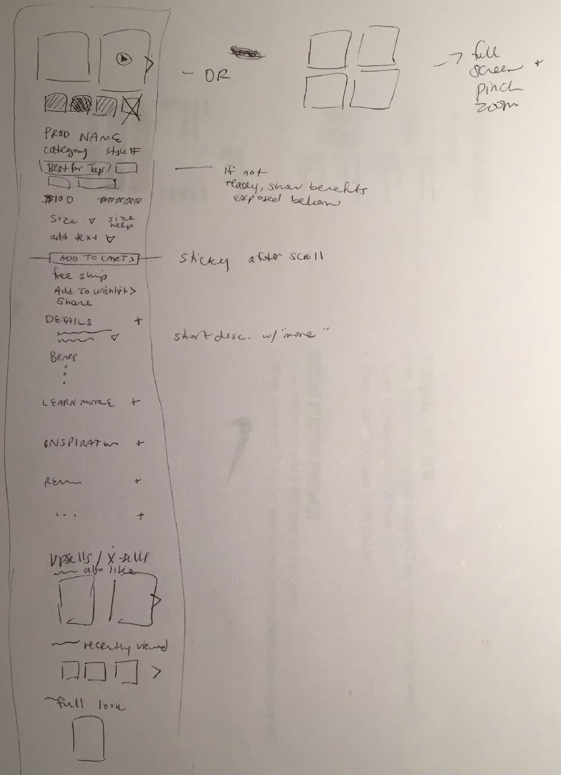 - OR
→ full
screen +
pinch
zoom
PROD NAME
category style#
Best for Tops
If not
ready, show benefits
exposed below
$100
Size ▽ size
help
add text ▽
ADD TO CART >
sticky after scroll
free ship
Add To Wishlist >
Share
DETAILS +
short desc. w/ "more"
Benes
LEARN MORE +
INSPIRATION +
+
... +
Upsells / X-sells
also like
recently viewed
>
full look